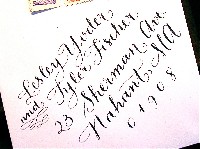 Lesley Yoder
and Tyler Fischer
23 Sherman Ave.
Nahant, MA
01908